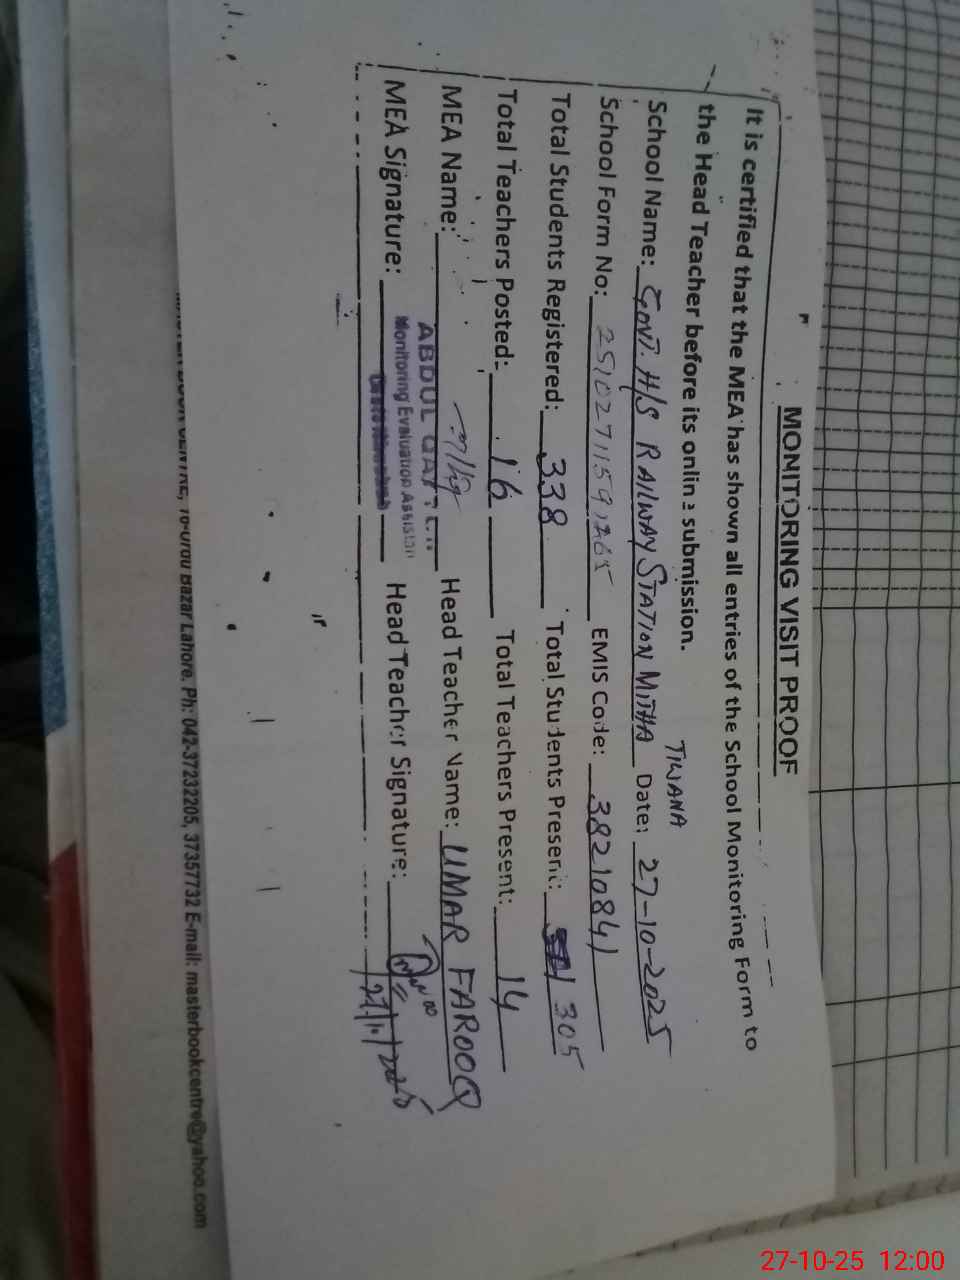 MONITORING VISIT PROOF
It is certified that the MEA has shown all entries of the School Monitoring Form to
the Head Teacher before its online submission.
TIWANA
School Name: GOVT. H/S RAILWAY STATION MITHA Date: 27-10-2025
School Form No: EMIS Code: 38210841
Total Students Registered: 338 Total Students Present: 305
Total Teachers Posted: 16 Total Teachers Present: 14
MEA Name: Head Teacher Name: UMAR FAROOQ
ABDUL
Monitoring Evaluation Assistant
MEA Signature: Head Teacher Signature:
Bazar Lahore. Ph: 042-37232205, 37357732 E-mail: masterbookcentre@yahoo.com
27-10-25 12:00